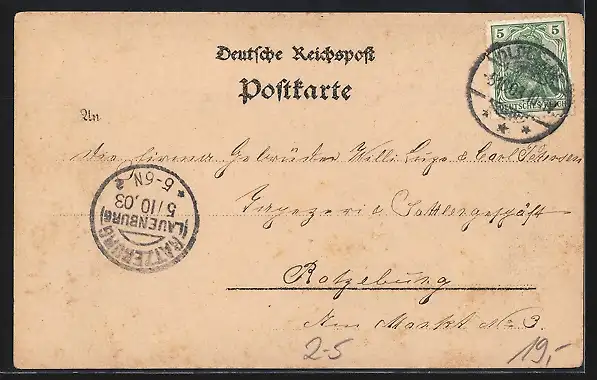 5
DEUTSCHES REICH
Deutsche Reichspost
Postkarte
An
die Firma Gebrüder Willi &  Carl
Tapezier & Sattlergeschäft
Ratzeburg
Am Markt No 3.
RATZEBURG
(LAUENBURG)
5/10.03
5-6N.
2-5
19,-